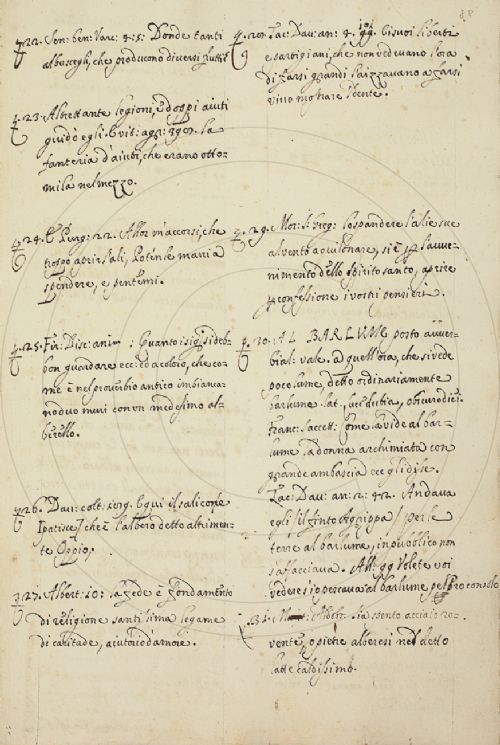 22. Sen: ben: Varc: 4: 5: Donde tanti
albuscegli, che producono diversi frutti
23. Altrettante legioni, e doppi aiuti
guidò egli. E vit: agr: 390. la
fanteria d'aiuti, che erano otto-
mila nel mezzo.
24. E Purg: 22. Allor m'accorsi, che
troppo aprir l'ali, Potén le mani a
spendere, e pentemi.
25. Fir: Disc: anim: Quanto i sig. si deb-
bon guardare ecc: da coloro, che co-
me è nel proverbio antico imbianca-
no duo muri con un medesimo al-
berello.
26. Dav: colt: 159. E qui il salicone
che è l'albero detto altrimen-
te Oppio.
27. Albert: 60: la fede è fondamento
di religione santissima legame
di caritade, aiutorio d'amore.
Tac: Dav: an: 4. 99. E i suoi liberti
e partigiani, che non vedevano l'ora
di farsi grandi l'aizzavano a farsi
vivo mostrare i denti.
29. Mor: S. Greg: lo spandere l'alie sue
al vento aquilonare, si è per l'avve-
nimento dello spirito santo, aprire
per confessione i vostri pensieri.
30. AL BARLUME posto avver-
bial: vale. a quell'ora, che si vede
poco lume, detto ordinariamente
barlume lat.
Franc: Sacch: Come la vide al bar-
lume la donna archimiata con
grande ambascia ecc gli disse.
Tac: Dav: an: 2: 42. Andava
egli, il finto Agrippa per le
terre al barlume, in pubblico non
s'affacciava. All: 99 Volete voi
vedere s'io pescava al barlume pel Proconsolo
31. Sia spento acciaio ro-
vente, o pietre alberesi nel detto
latte caldissimo.